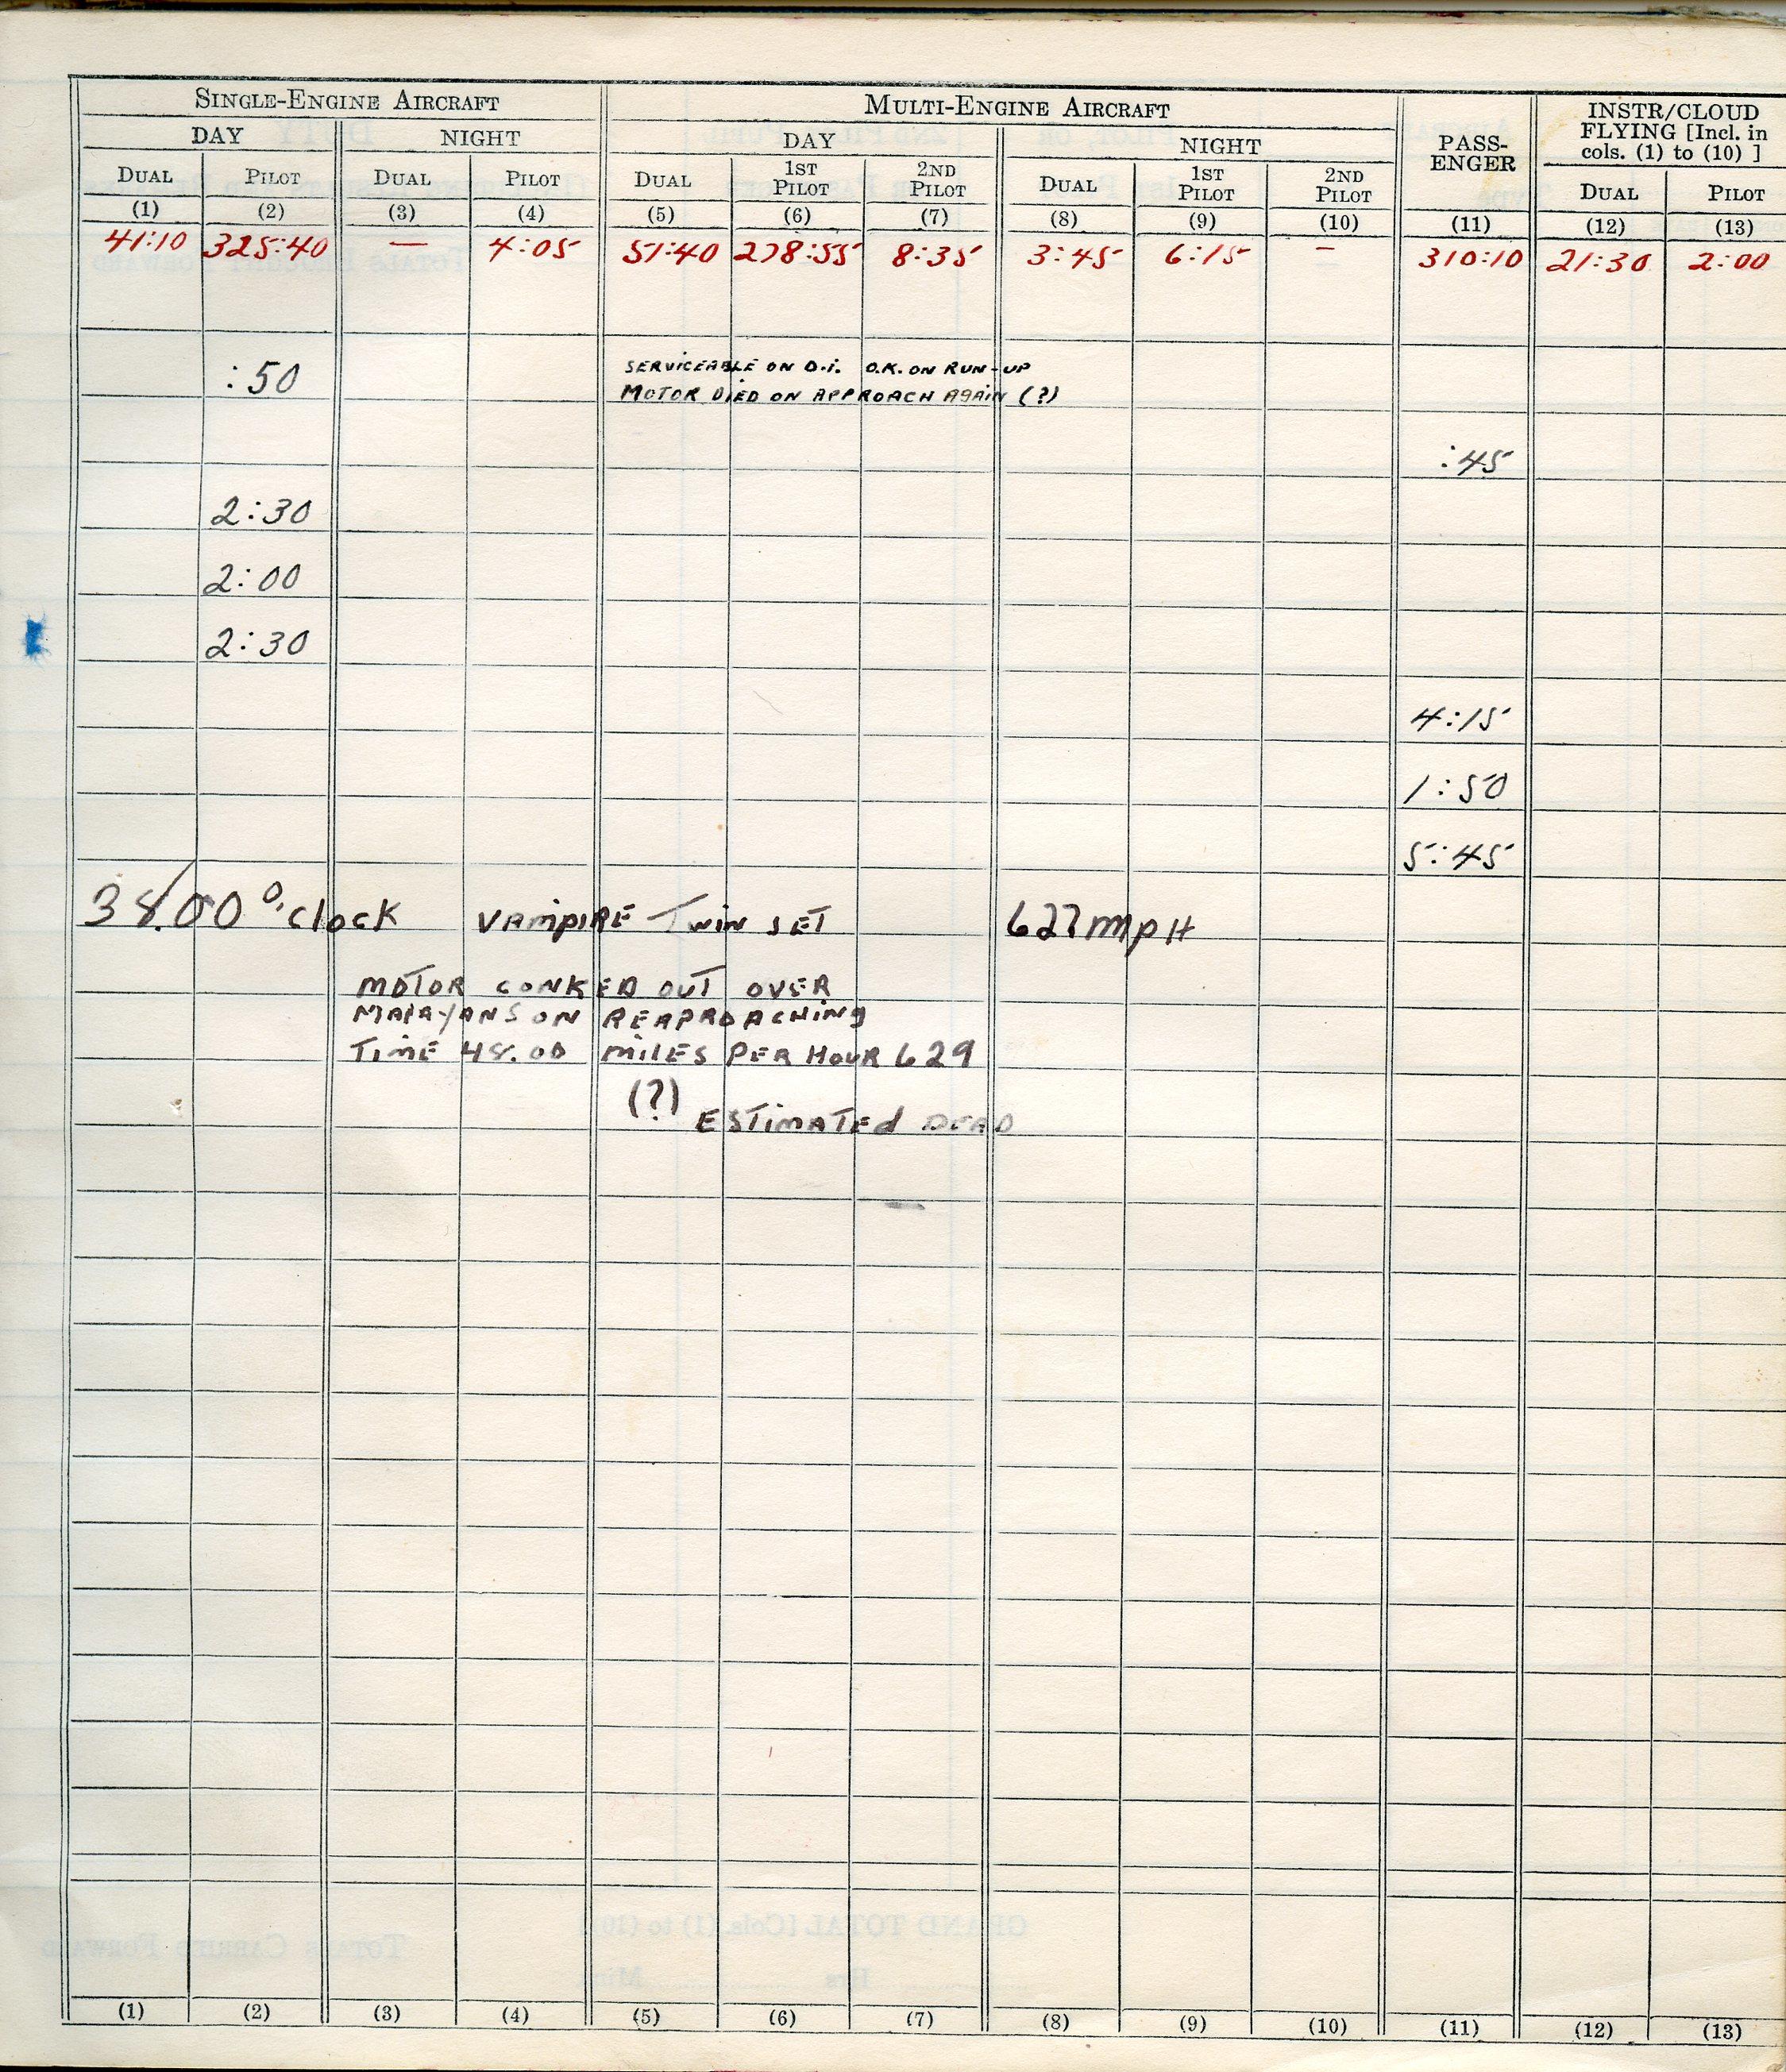 SINGLE-ENGINE AIRCRAFT MULTI-ENGINE AIRCRAFT PASS-ENGER INSTR/CLOUD FLYING [Incl. in cols. (1) to (10) ]
DAY NIGHT DAY NIGHT
DUAL PILOT DUAL PILOT DUAL 1ST PILOT 2ND PILOT DUAL 1ST PILOT 2ND PILOT DUAL PILOT
(1) (2) (3) (4) (5) (6) (7) (8) (9) (10) (11) (12) (13)
41:10 325:40 — 4:05 51:40 278:55 8:35 3:45 6:15 — 310:10 21:30 2:00
:50 SERVICEABLE ON D.i. O.K. ON RUN-UP
MOTOR DIED ON APPROACH AGAIN (?)
:45
2:30
2:00
2:30
4:15
1:50
5:45
38.00 O,clock VAMPIRE TWIN SET 627 mpH
MOTOR CONKED OUT OVER
ON REAPROACHING
TIME 48.00 MILES PER HOUR 629
(?) ESTIMATEd DEAD
(1) (2) (3) (4) (5) (6) (7) (8) (9) (10) (11) (12) (13)